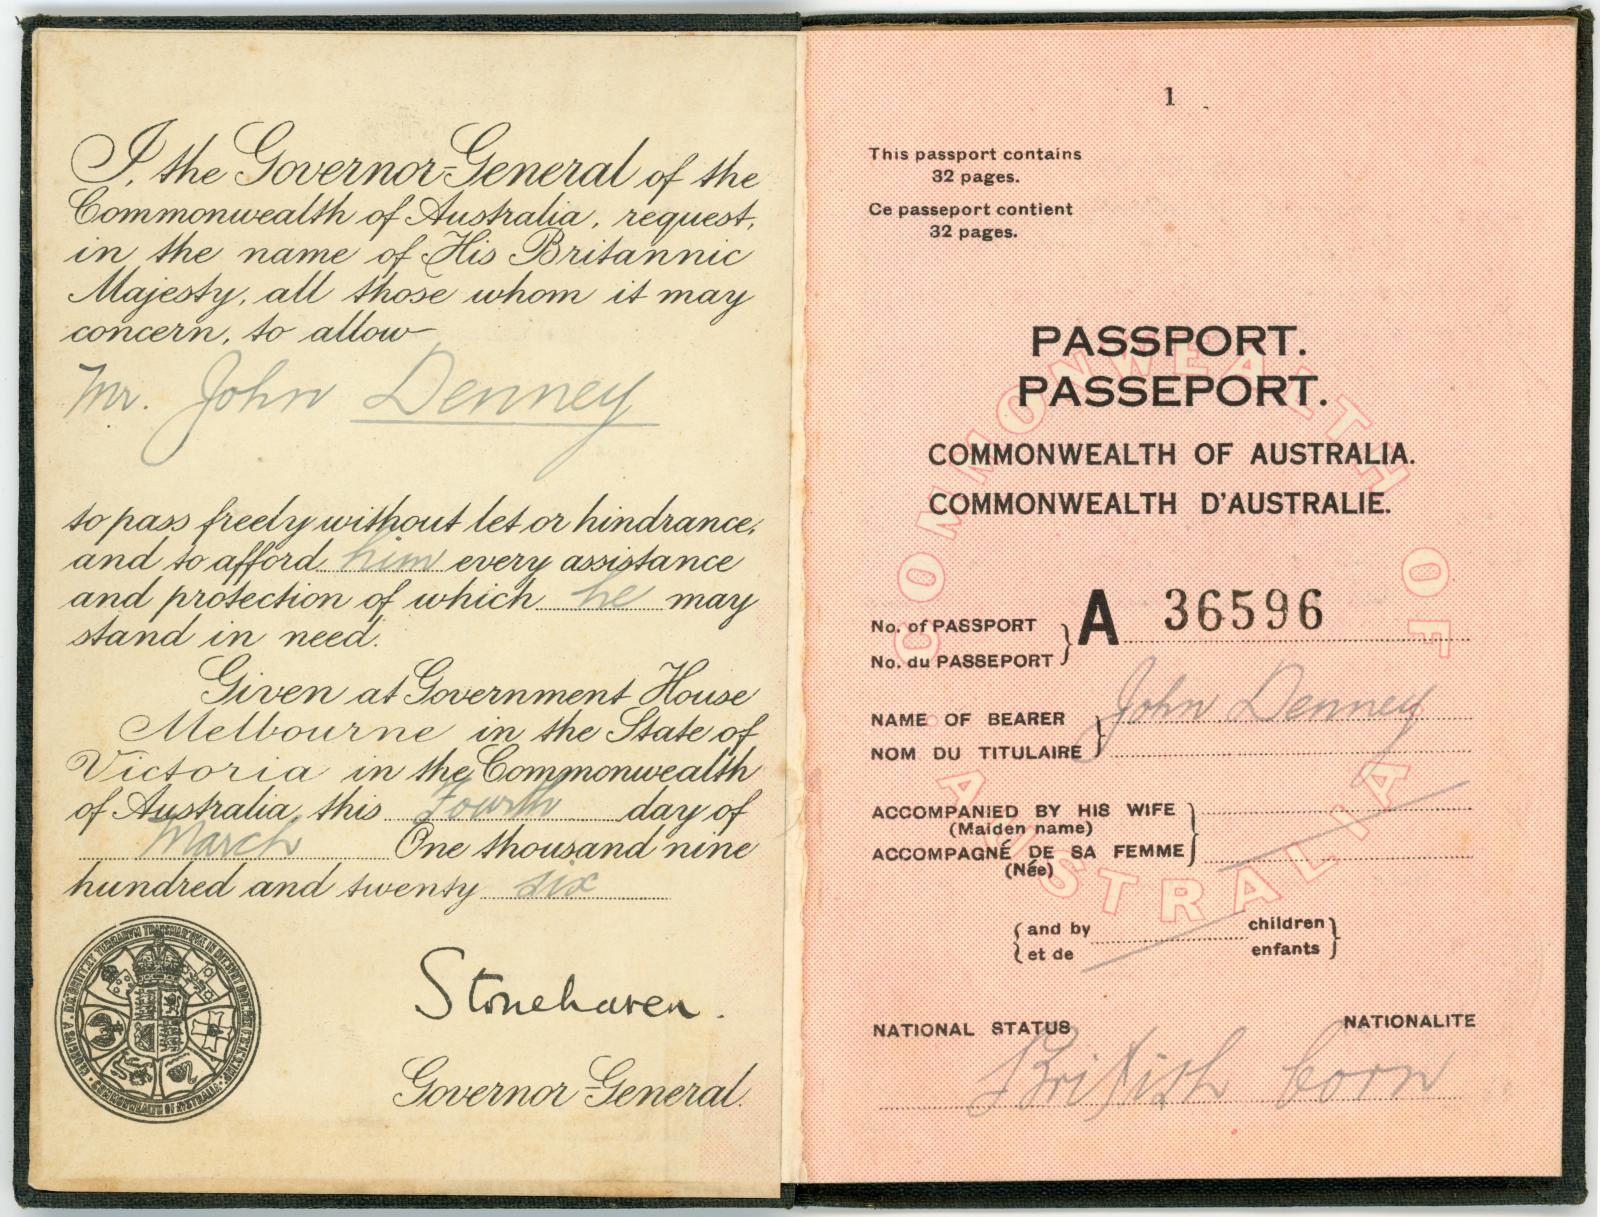 I, the Governor-General of the
Commonwealth of Australia, request,
in the name of His Britannic
Majesty, all those whom it may
concern, to allow
Mr. John Denney
to pass freely without let or hindrance,
and to afford him every assistance
and protection of which he may
stand in need.
Given at Government House
Melbourne in the State of
Victoria in the Commonwealth
of Australia, this Fourth day of
March One thousand nine
hundred and twenty six
COMMONWEALTH OF AUSTRALIA
Stonehaven.
Governor-General.
1
This passport contains
32 pages.
Ce passeport contient
32 pages.
PASSPORT.
PASSEPORT.
COMMONWEALTH OF AUSTRALIA.
COMMONWEALTH D'AUSTRALIE.
COMMONWEALTH OF AUSTRALIA
No. of PASSPORT
No. du PASSEPORT
A 36596
NAME OF BEARER John Denney
NOM DU TITULAIRE
ACCOMPANIED BY HIS WIFE
(Maiden name)
ACCOMPAGNÉ DE SA FEMME
(Née)
and by children
et de enfants
NATIONAL STATUS NATIONALITE
British born